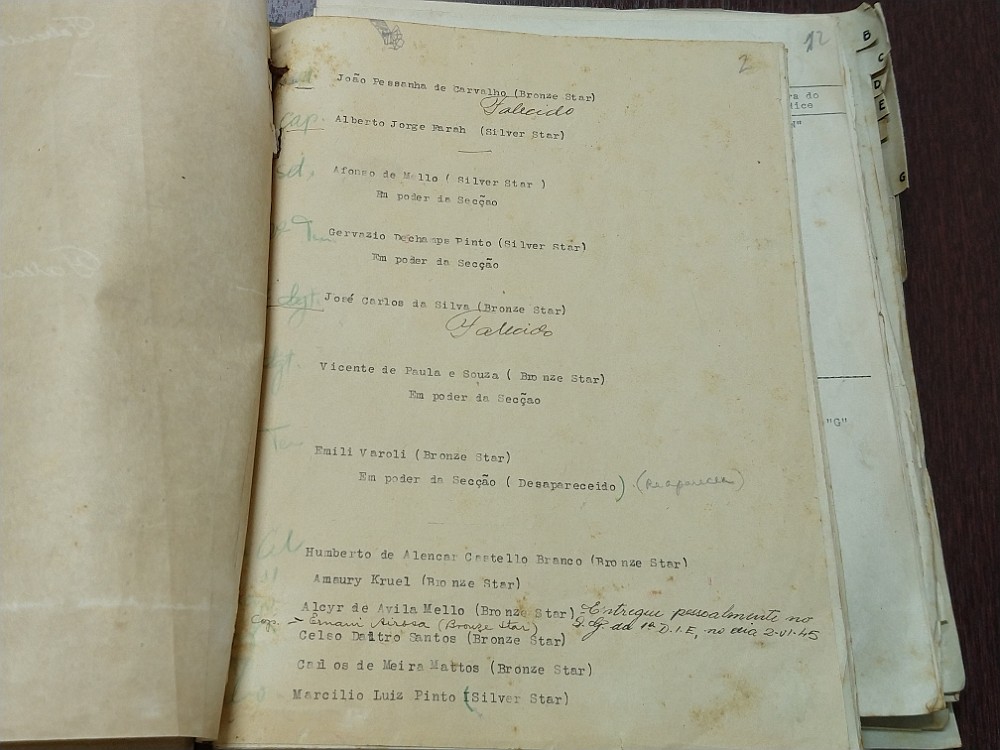 2
João Pessanha de Carvalho (Bronze Star)
Falecido
cap. Alberto Jorge Farah (Silver Star)
sd. Afonso de Mello ( Silver Star )
Em poder da Secção
Ten Gervazio Dechamps Pinto (Silver Star)
Em poder da Secção
Sgt. José Carlos da Silva (Bronze Star)
Falecido
Sgt. Vicente de Paula e Souza ( Bronze Star)
Em poder da Secção
Ten Emili Varoli (Bronze Star)
Em poder da Secção ( Desapareceido) (Reapareceu)
Cel Humberto de Alencar Castello Branco (Bronze Star)
Amaury Kruel (Bronze Star)
Alcyr de Avila Mello (Bronze Star) - Entregue pessoalmente no
Q.G. da 1ª D.I.E, no dia 2-VI-45
Cap. - Ernani Airosa (Bronze Star)
Celso Daltro Santos (Bronze Star)
Carlos de Meira Mattos (Bronze Star)
Marcilio Luiz Pinto (Silver Star)
12
B
C
D
E
G
ra do
dice
"G"